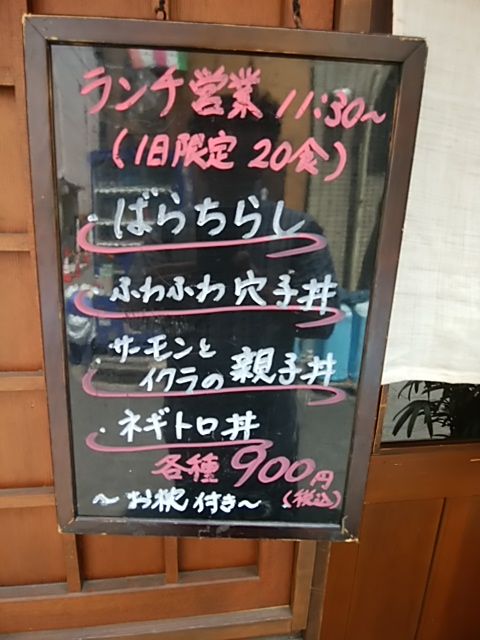 ランチ営業 11:30~
(1日限定 20食)
・ばらちらし
・ふわふわ穴子丼
・サーモンと
イクラの親子丼
・ネギトロ丼
各種 900円
～お椀付き～ (税込)